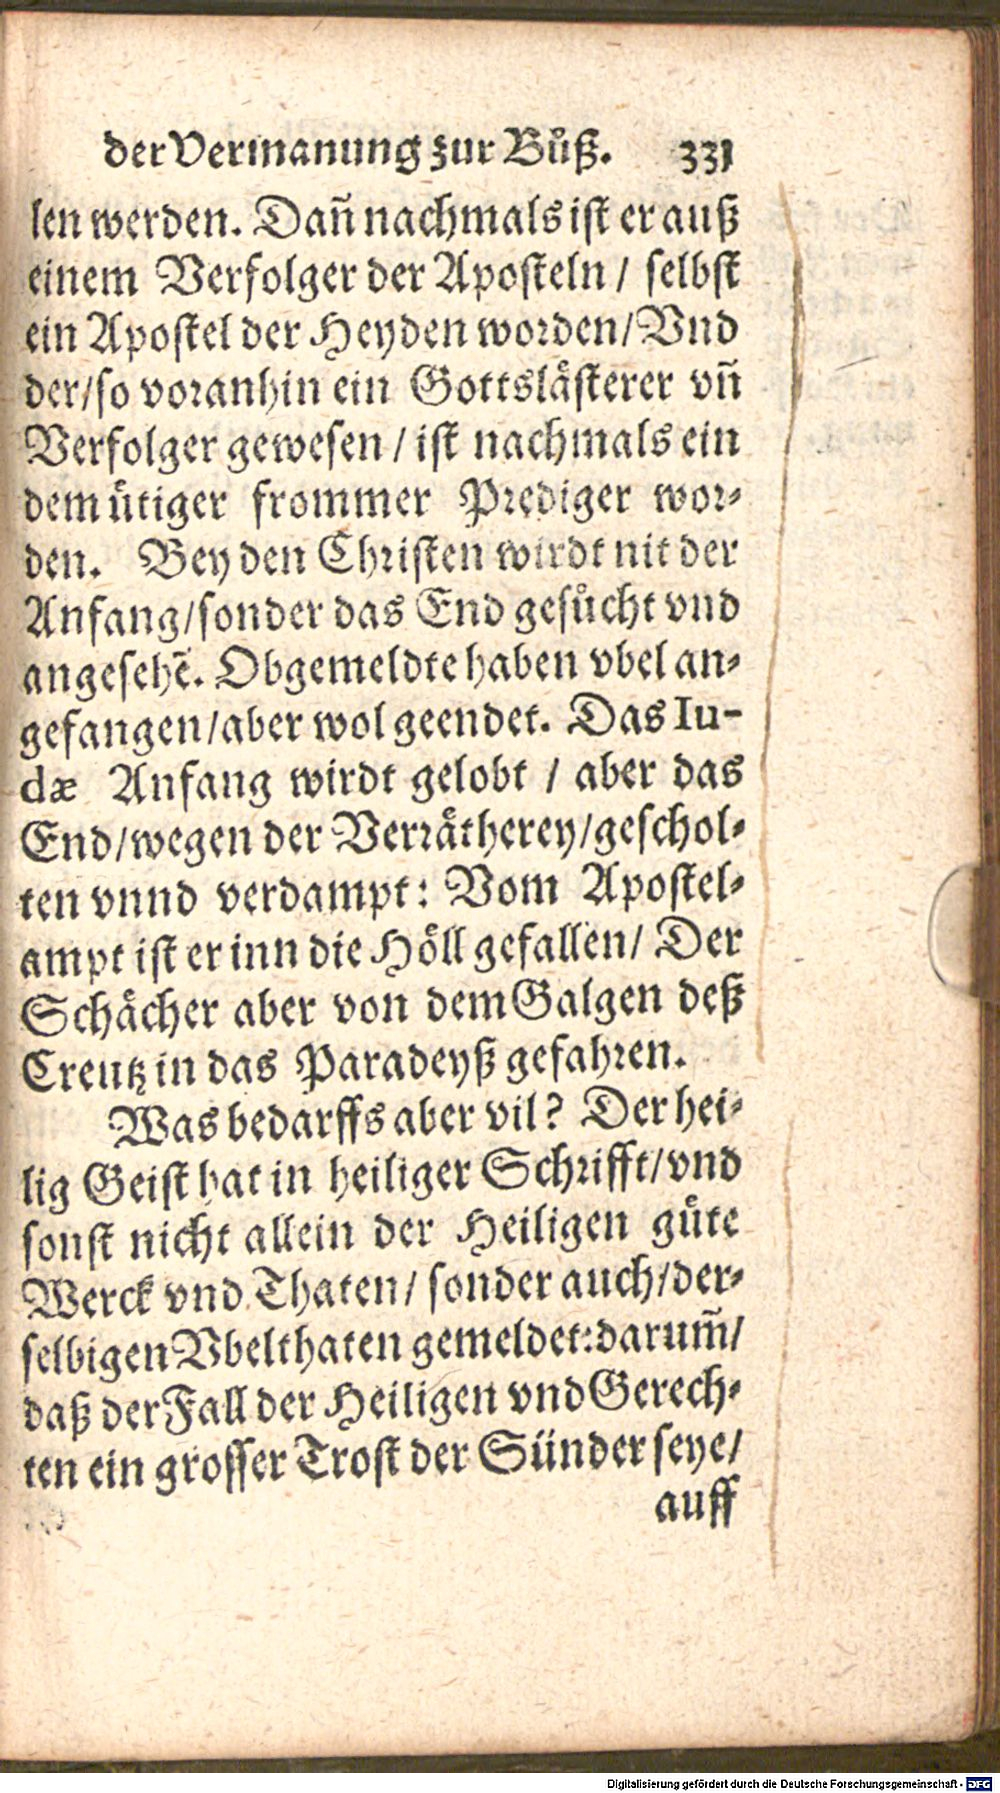 der Vermanung zur Bůß. 331
len werden. Dañ nachmals ist er auß
einem Verfolger der Aposteln / selbst
ein Apostel der Heyden worden/ Vnd
der/so voranhin ein Gottslåsterer vñ
Verfolger gewesen / ist nachmals ein
demůtiger frommer Prediger wor-
den. Bey den Christen wirdt nit der
Anfang/sonder das End gesůcht vnd
angesehẽ. Obgemeldte haben vbel an-
gefangen/aber wol geendet. Das Iu-
dæ Anfang wirdt gelobt / aber das
End/wegen der Verråtherey/geschol-
ten vnnd verdampt: Vom Apostel-
ampt ist er inn die Höll gefallen/ Der
Schåcher aber von dem Galgen deß
Creutz in das Paradeyß gefahren.
Was bedarffs aber vil? Der hei-
lig Geist hat in heiliger Schrifft/vnd
sonst nicht allein der Heiligen gůte
Werck vnd Thaten/ sonder auch/der-
selbigen Vbelthaten gemeldet:darum̃/
daß der Fall der Heiligen vnd Gerech-
ten ein grosser Trost der Sünder seye/
auff
Digitalisierung gefördert durch die Deutsche Forschungsgemeinschaft - DFG